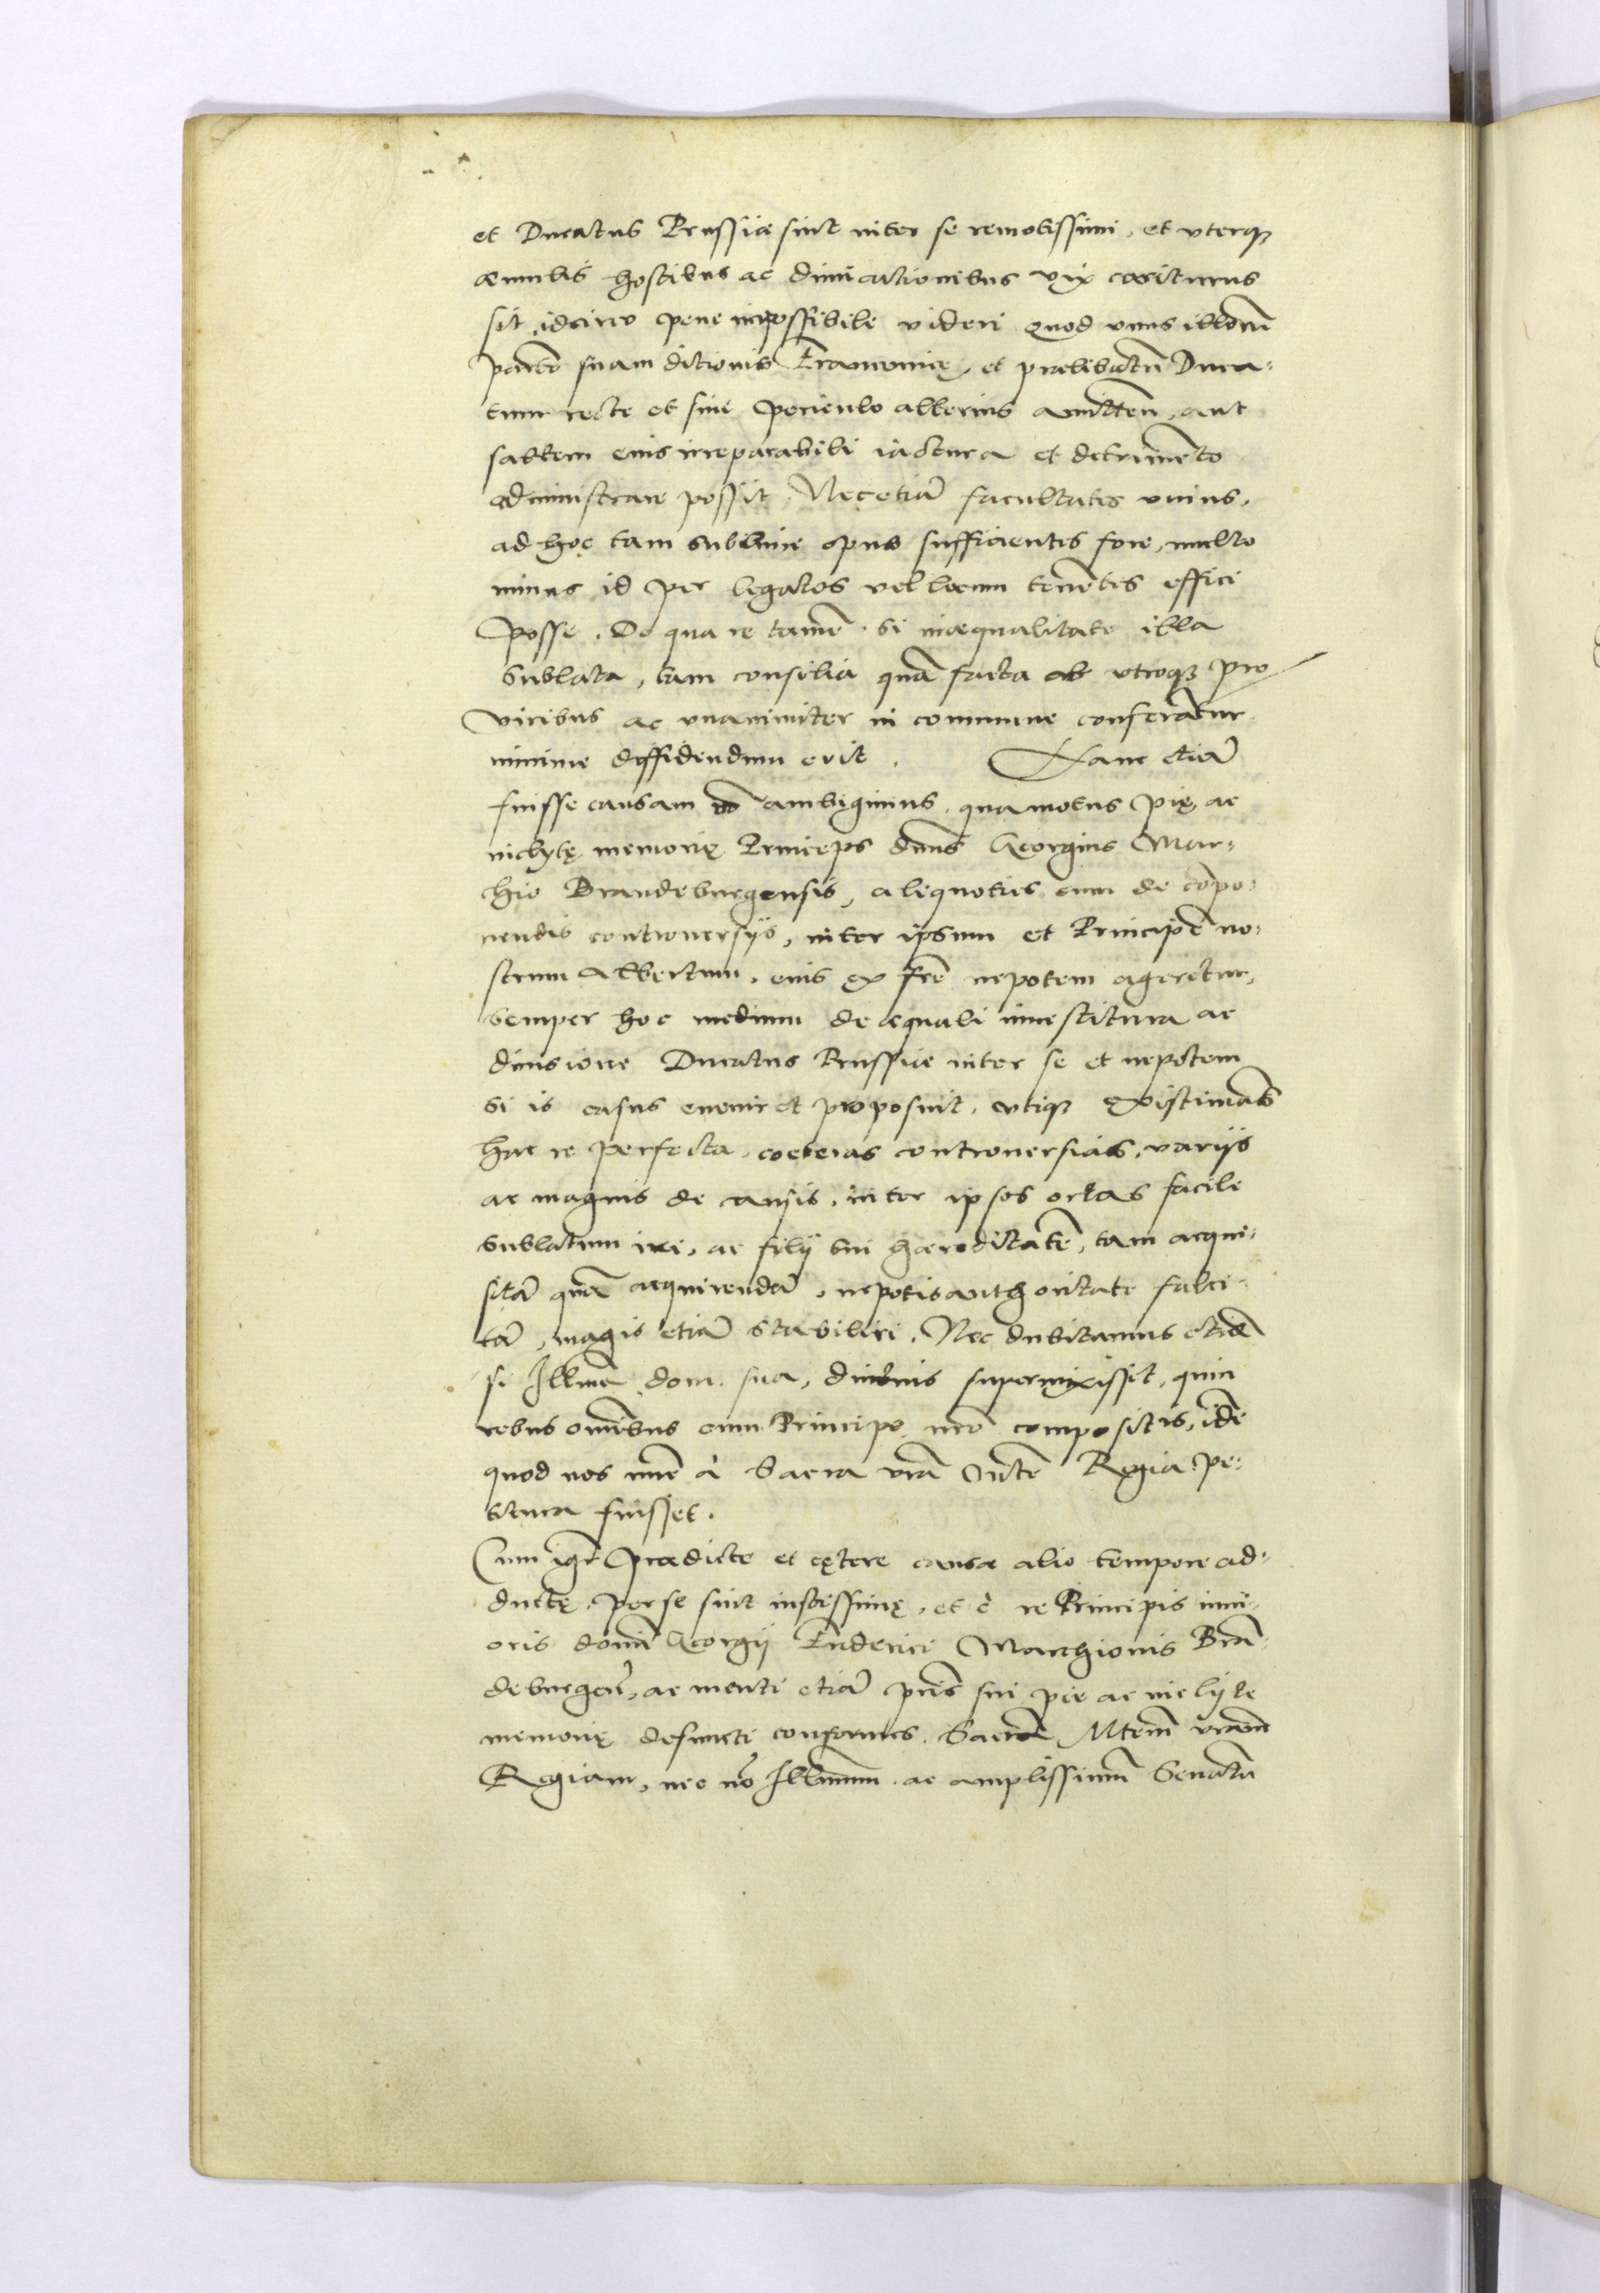 et Ducatus Prussiæ sint inter se remotissimi, et vterq3
æmulis hostibus ac dimicationibus vix cariturus
sit, idcirco pene impossibile videri quod vnus illorũ
partẽ suam ditionis Franconię, et prælibatũ Duca-
tum recte et sine periculo alterius amittẽn, aut
saltem eius irreparabili iactura et detrimẽto
administrare possit, Nec etiã facultates vnius,
ad hoc tam sublime opus sufficientes fore, multo
minus id per legatos vel locum tenẽtes effici
posse. De qua re tamẽ si inæqualitate illa
sublata, tam consilia quã facta ab vtroq3 pro
viribus ac vnanimiter in commune conferãtur
minime diffidendum erit. Hanc etiã
fuisse causam nõ ambigimus, qua motus pię ac
inclytę memorię Princeps dñus Georgius Mar-
chio Brandeburgensis, aliquoties cum de cõpo-
nendis controuersijs, inter ipsum et Principẽ no-
strum Albertum, eius ex frẽ nepotem ageretur,
semper hoc medium de æquali inuestitura ac
diuisione Ducatus Prussiæ inter se et nepotem
si is casus eueniret proposuit, vtiq3 existimãs
hac re perfecta, coeteras controuersias, varijs
ac magnis de causis, inter ipsos ortas facile
sublatum iri, ac filij sui hæreditatẽ, tam acqui-
sitã quã acquirendã, nepotis authoritate fulci-
tã, magis etiã stabiliri. Nec dubitamus etiã
si Illma dom. sua, diutius superuixisset, quin
rebus omĩbus cum Principe nrõ compositis, idẽ
quod nos nũc à Sacra vrã Mte Regia pe-
titura fuisset.
Cum igr prædicte et cętere causæ alio tempore ad-
ductę, per se sint iustissimę, et è re Principis iuni-
oris domĩ Georgij Friderici Marchionis Brã-
deburgeñ, ac menti etiã pris sui pie ac inclyte
memorię defuncti conformes. Sacrã Mtem vram
Regiam, nec nõ Illmum ac amplissimũ Senatũ